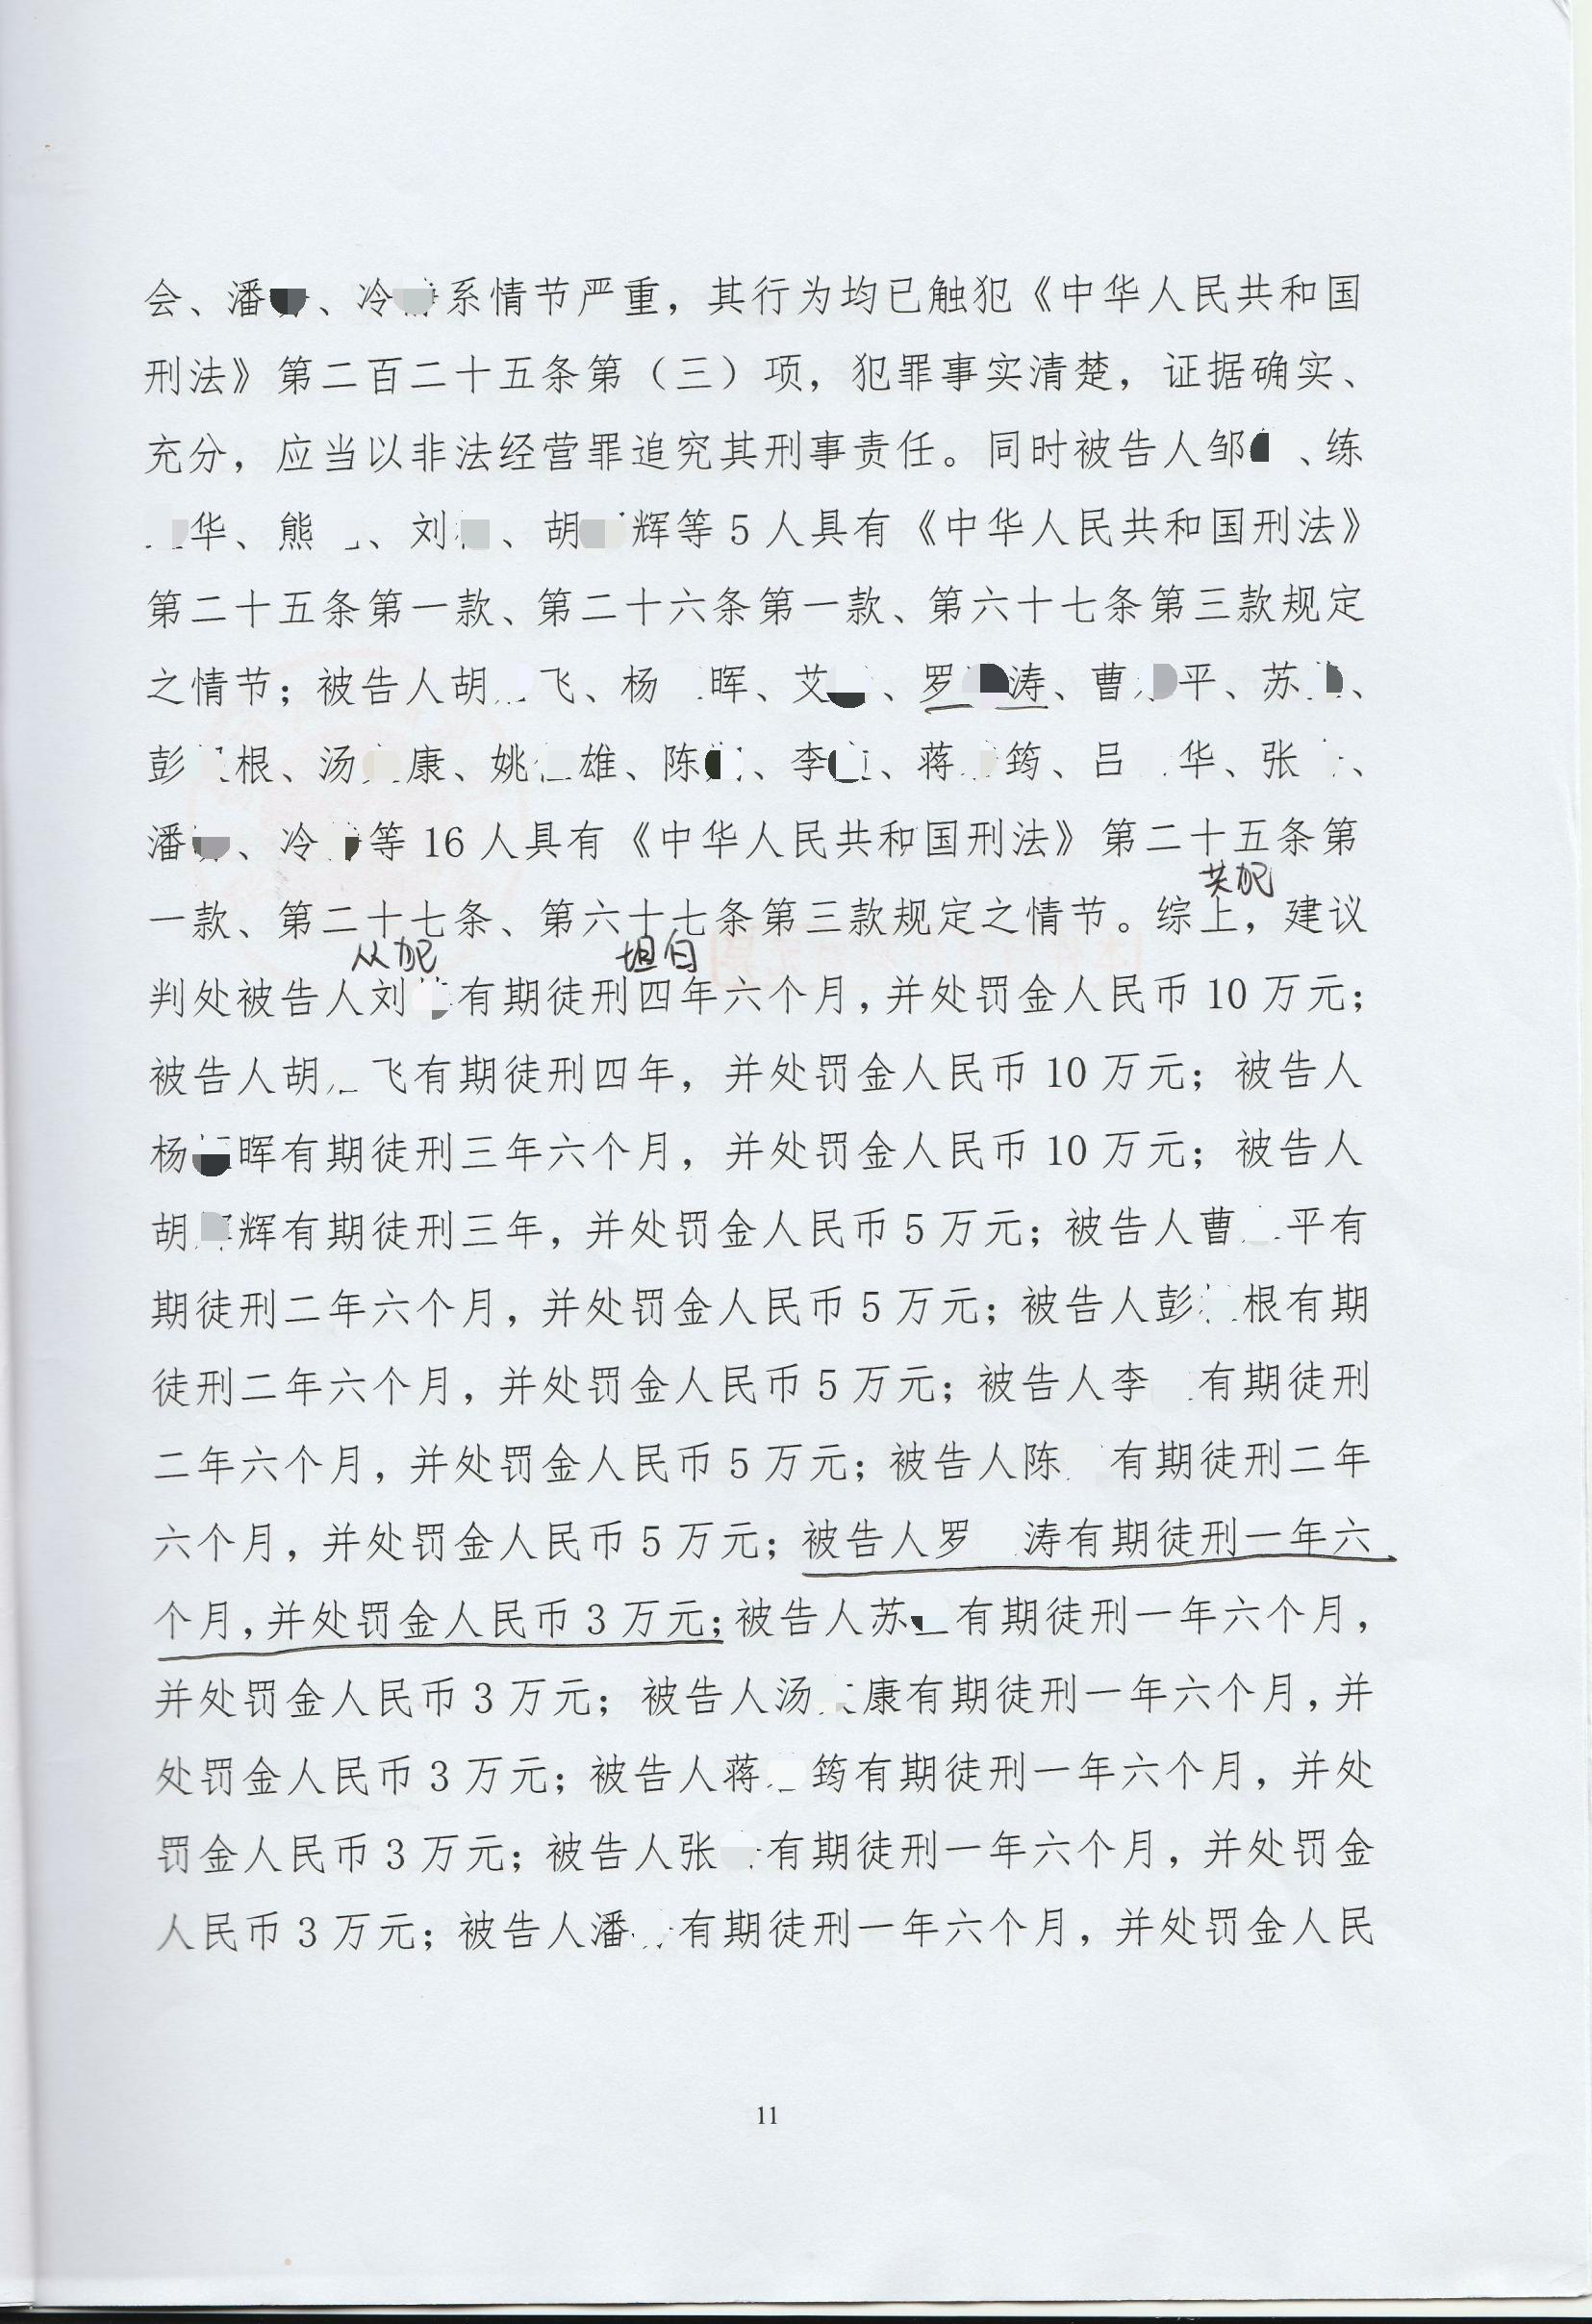 会、潘、冷系情节严重，其行为均已触犯《中华人民共和国
刑法》第二百二十五条第（三）项，犯罪事实清楚，证据确实、
充分，应当以非法经营罪追究其刑事责任。同时被告人邹、练
华、熊、刘、胡辉等5人具有《中华人民共和国刑法》
第二十五条第一款、第二十六条第一款、第六十七条第三款规定
之情节；被告人胡飞、杨晖、艾、罗涛、曹平、苏、
彭根、汤康、姚雄、陈、李、蒋筠、吕华、张、
潘、冷等16人具有《中华人民共和国刑法》第二十五条第
共犯
一款、第二十七条、第六十七条第三款规定之情节。综上，建议
从犯 坦白
判处被告人刘有期徒刑四年六个月，并处罚金人民币10万元；
被告人胡飞有期徒刑四年，并处罚金人民币10万元；被告人
杨晖有期徒刑三年六个月，并处罚金人民币10万元；被告人
胡辉有期徒刑三年，并处罚金人民币5万元；被告人曹平有
期徒刑二年六个月，并处罚金人民币5万元；被告人彭根有期
徒刑二年六个月，并处罚金人民币5万元；被告人李有期徒刑
二年六个月，并处罚金人民币5万元；被告人陈有期徒刑二年
六个月，并处罚金人民币5万元；被告人罗涛有期徒刑一年六
个月，并处罚金人民币3万元；被告人苏有期徒刑一年六个月，
并处罚金人民币3万元；被告人汤康有期徒刑一年六个月，并
处罚金人民币3万元；被告人蒋筠有期徒刑一年六个月，并处
罚金人民币3万元；被告人张有期徒刑一年六个月，并处罚金
人民币3万元；被告人潘有期徒刑一年六个月，并处罚金人民
11